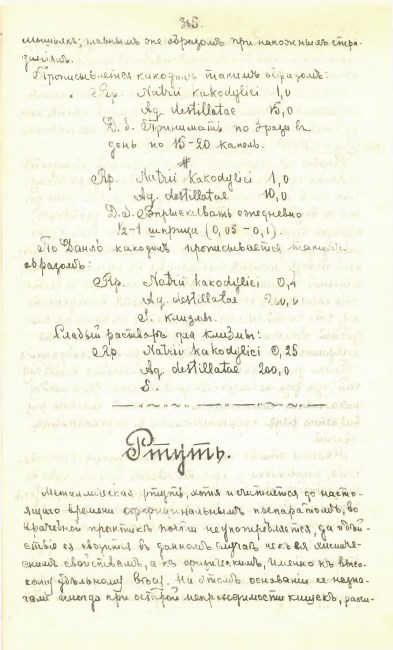 мышьякъ; главнымъ же образомъ при накожныхъ стра-
данiяхъ.
Прописывается какодилъ такимъ образомъ:
Rp. Natrii kakodylici 1,0
Aq. destillatae 15,0
D. S. Принимать по 3 раза въ
день по 15-20 капель.
#
Rp. Natrii Kakodylici 1,0
Aq. destillatae 10,0
D. S. Впрыскивать ежедневно
½-1 шприца (0,05 - 0,1).
По Данло какодилъ прописывается такимъ
образомъ:
Rp. Natrii kakodylici 0,4
Aq. destillatae 200,0
S. клизмы.
Слабый растворъ для клизмы:
Rp. Natrii kakodylici 0,25
Aq. destillatae 200,0
S.
Ртуть.
Металлическая ртуть, хотя и считается до насто-
ящаго времени оффицинальнымъ препаратомъ, во
врачебной практикѣ почти не употребляется, да и дѣй-
ствiе ея сводится въ данномъ случаѣ не къ ея химиче-
скимъ свойствамъ, а къ физическимъ, именно къ высо-
кому удѣльному вѣсу. На этомъ основанiи ее назна-
чали иногда при острой непроходимости кишекъ, расчи-